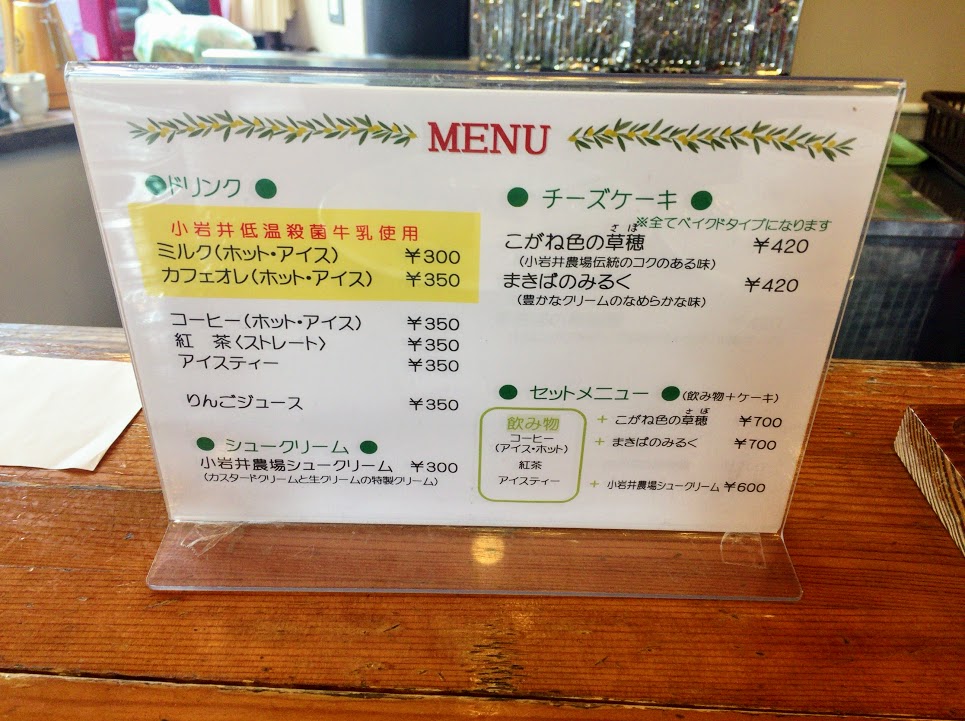 MENU
●ドリンク●
小岩井低温殺菌牛乳使用
ミルク(ホット・アイス) ¥300
カフェオレ(ホット・アイス) ¥350
コーヒー(ホット・アイス) ¥350
紅 茶〈ストレート〉 ¥350
アイスティー ¥350
りんごジュース ¥350
●シュークリーム●
小岩井農場シュークリーム ¥300
(カスタードクリームと生クリームの特製クリーム)
●チーズケーキ●
※全てベイクドタイプになります
さほ
こがね色の草穂 ¥420
(小岩井農場伝統のコクのある味)
まきばのみるく ¥420
(豊かなクリームのなめらかな味)
●セットメニュー●(飲み物+ケーキ)
飲み物
コーヒー
(アイス・ホット)
紅茶
アイスティー
さほ
+ こがね色の草穂 ¥700
+ まきばのみるく ¥700
+ 小岩井農場シュークリーム ¥600